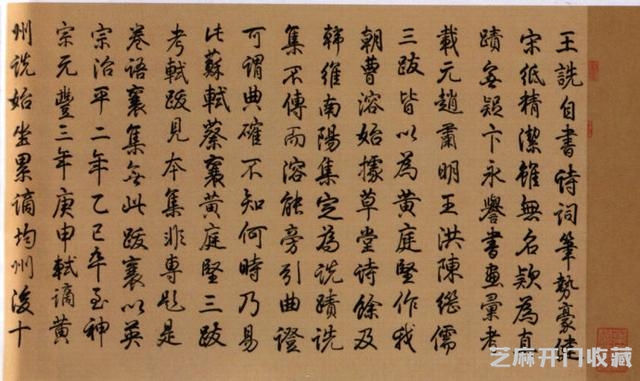 王詵自書诗詞筆勢豪健
宋紙精潔雖無名款為真
蹟無疑卞永譽書畫彙考
載元趙肅明王洪陳繼儒
三跋皆以為黄庭堅作我
朝曹溶始據草堂诗餘及
韓維南陽集定為詵蹟詵
集不傳而溶能旁引曲證
可謂典確不知何時乃易
此蘇軾蔡襄黄庭堅三跋
考軾跋見本集非專題是
卷語襄集無此跋襄以英
宗治平二年乙巳卒至神
宗元豐三年庚申軾謫黄
州詵始坐累謫均州後十
芝麻开门收藏